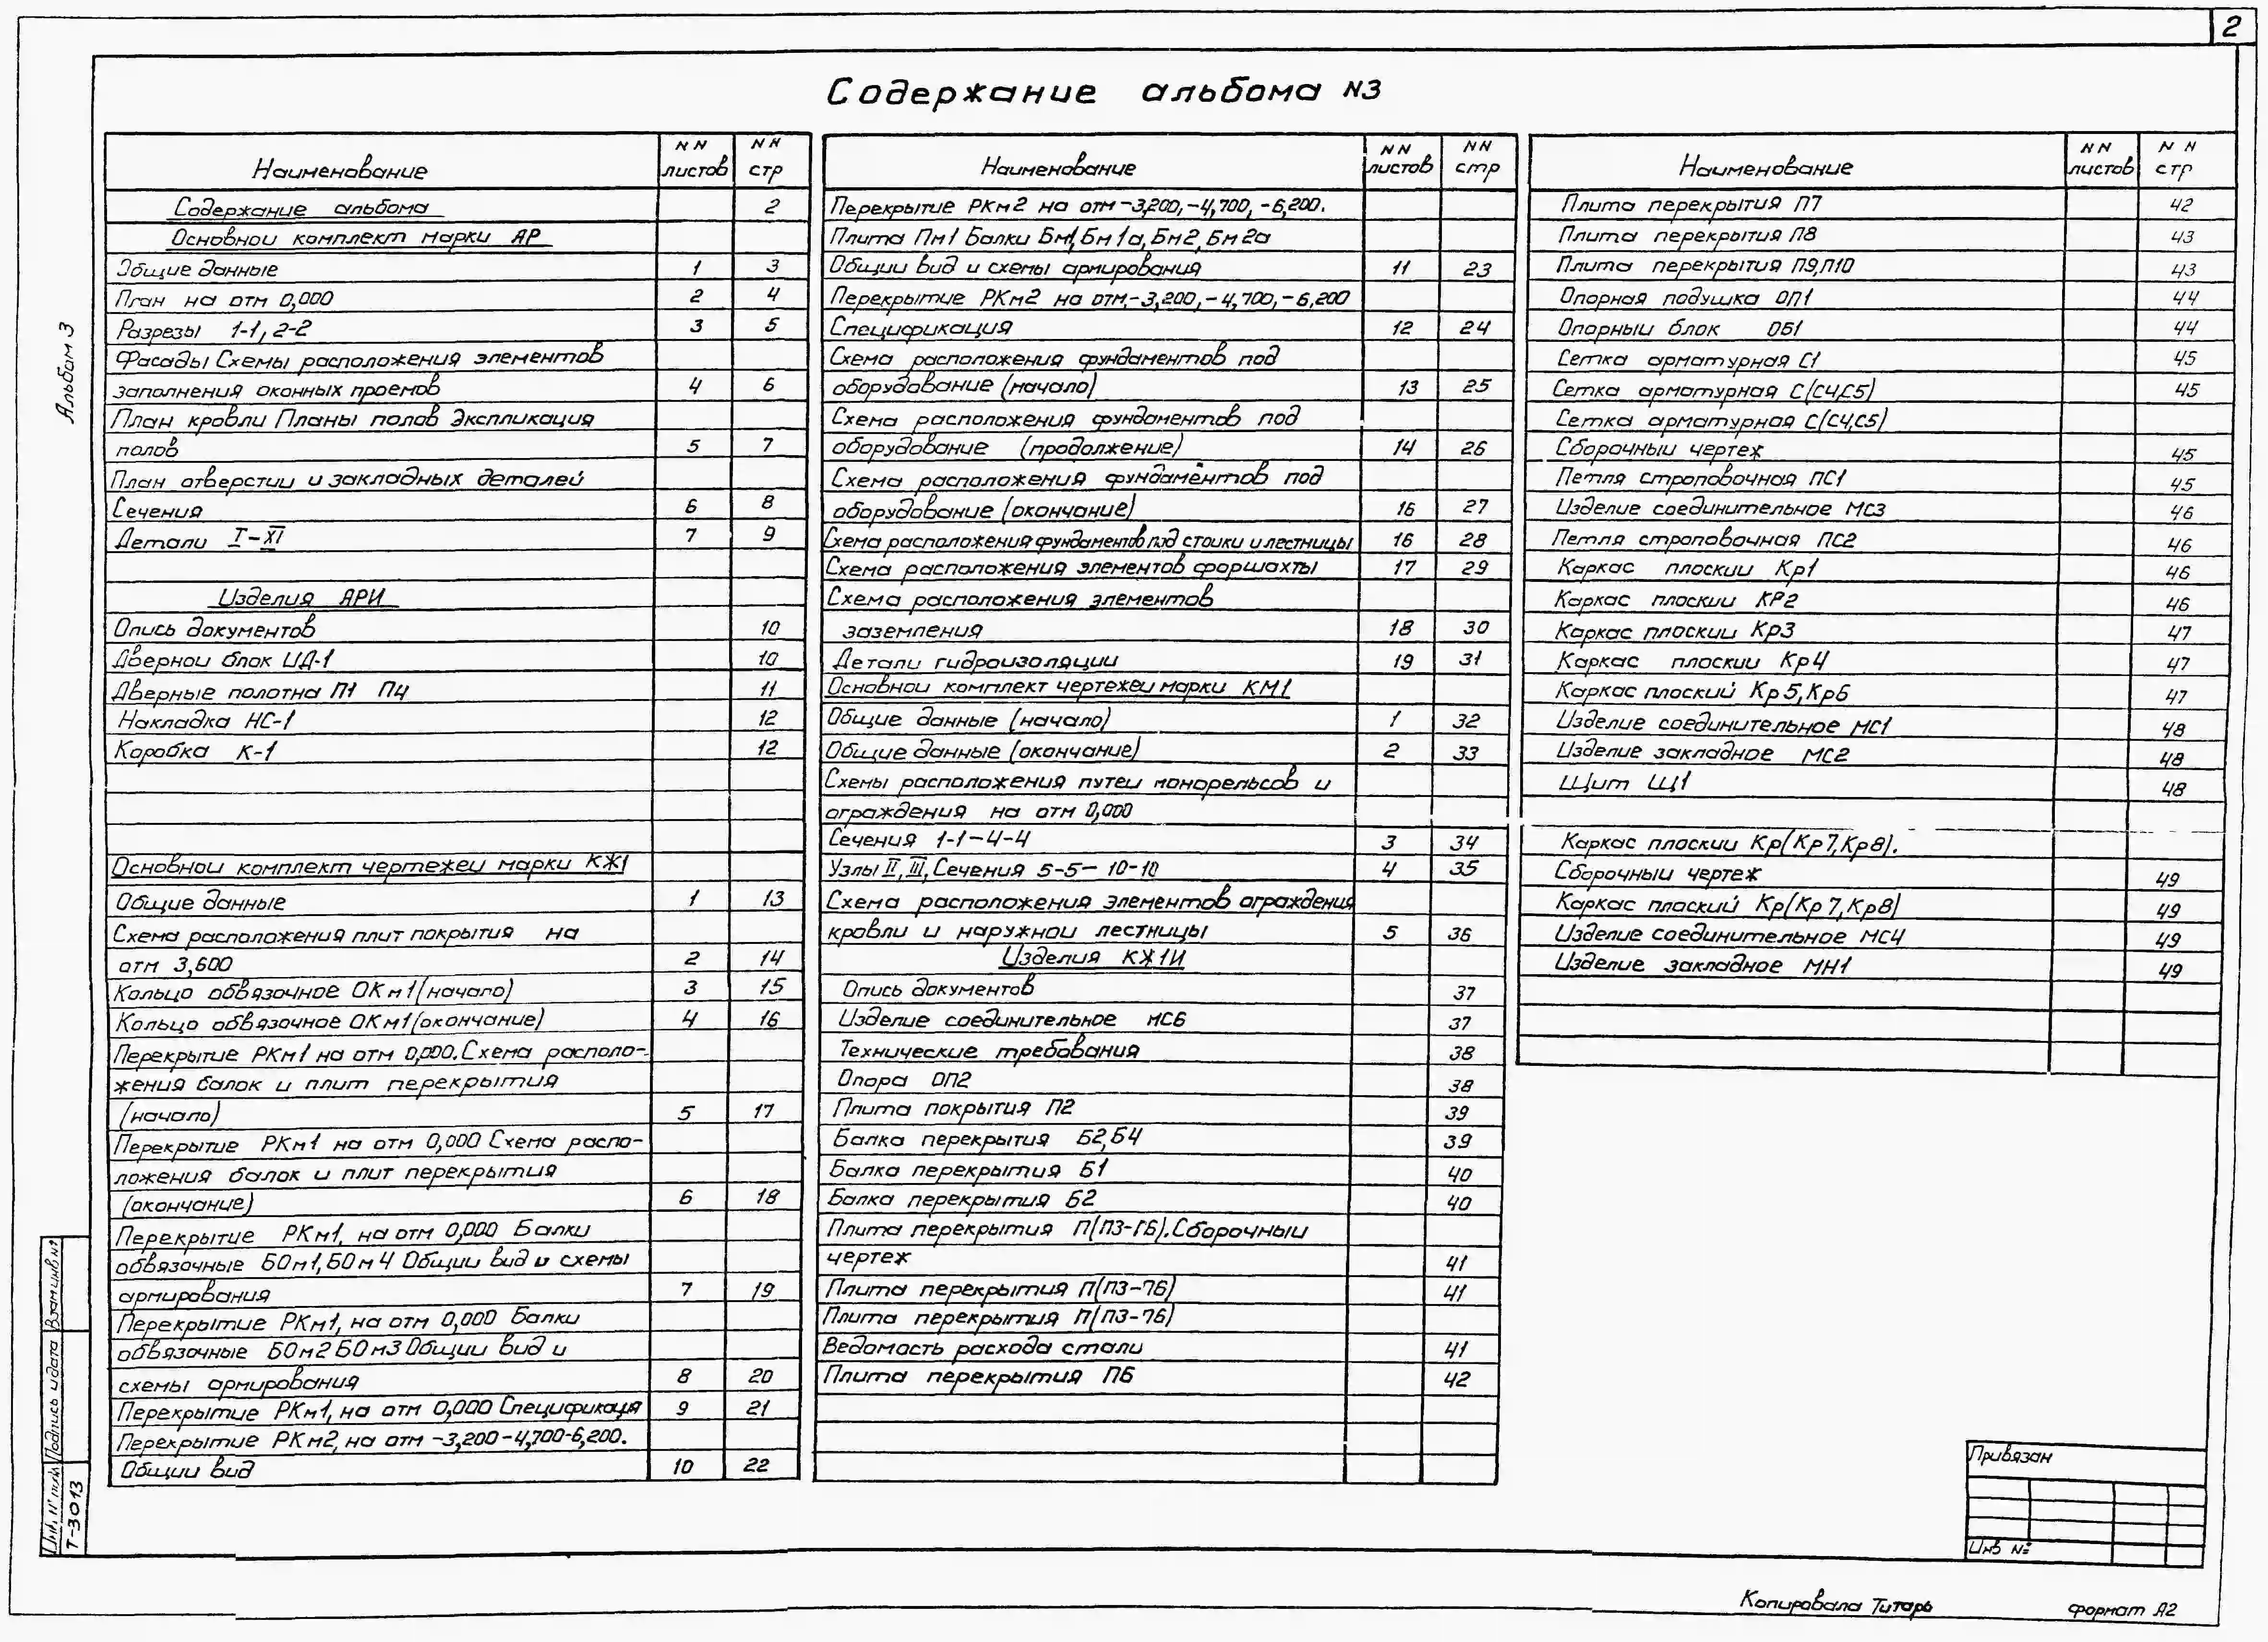 2
Содержание альбома N3
Альбом 3
Наименование NN листов NN стр
Содержание альбома 2
Основной комплект марки АР
Общие данные 1 3
План на отм 0,000 2 4
Разрезы 1-1, 2-2 3 5
Фасады Схемы расположения элементов
заполнения оконных проемов 4 6
План кровли Планы полов Экспликация
полов 5 7
План отверстии и закладных деталей
Сечения 6 8
Детали I-XI 7 9
Изделия АРИ
Опись документов 10
Дверной блок ИД-1 10
Дверные полотна П1 П4 11
Накладка НС-1 12
Коробка К-1 12
Основной комплект чертежей марки КЖ1
Общие данные 1 13
Схема расположения плит покрытия на
отм 3,600 2 14
Кольцо обвязочное ОКм1 (начало) 3 15
Кольцо обвязочное ОКм1 (окончание) 4 16
Перекрытие РКм1 на отм 0,000. Схема располо-
жения балок и плит перекрытия
(начало) 5 17
Перекрытие РКм1 на отм 0,000 Схема распо-
ложения балок и плит перекрытия
(окончание) 6 18
Перекрытие РКм1, на отм 0,000 Балки
обвязочные БОм1, БОм4 Общии вид и схемы
армирования 7 19
Перекрытие РКм1, на отм 0,000 Балки
обвязочные БОм2 БОм3 Общии вид и
схемы армирования 8 20
Перекрытие РКм1, на отм 0,000 Спецификаця 9 21
Перекрытие РКм2, на отм -3,200-4,700-6,200.
Общии вид 10 22
Наименование NN листов NN стр
Перекрытие РКм2 на отм -3,200, -4,700, -6,200.
Плита Пм1 Балки Бм1, Бм1а, Бм2, Бм2а
Общии вид и схемы армирования 11 23
Перекрытие РКм2 на отм.-3,200,-4,700,-6,200
Спецификация 12 24
Схема расположения фундаментов под
оборудование (начало) 13 25
Схема расположения фундаментов под
оборудование (продолжение) 14 26
Схема расположения фундаментов под
оборудование (окончание) 16 27
Схема расположения фундаментов под стоики и лестницы 16 28
Схема расположения элементов форшахты 17 29
Схема расположения элементов
заземления 18 30
Детали гидроизоляции 19 31
Основной комплект чертежей марки КМ1
Общие данные (начало) 1 32
Общие данные (окончание) 2 33
Схемы расположения путеи монорельсов и
ограждения на отм 0,000
Сечения 1-1-4-4 3 34
Узлы II, III, Сечения 5-5- 10-10 4 35
Схема расположения элементов ограждения
кровли и наружнои лестницы 5 36
Изделия КЖ1И
Опись документов 37
Изделие соединительное МС6 37
Технические требования 38
Опора ОП2 38
Плита покрытия П2 39
Балка перекрытия Б2,Б4 39
Балка перекрытия Б1 40
Балка перекрытия Б2 40
Плита перекрытия П(П3-П6). Сборочныи
чертеж 41
Плита перекрытия П(П3-П6) 41
Плита перекрытия П(П3-П6)
Ведомость расхода стали 41
Плита перекрытия П6 42
Наименование NN листов NN стр
Плита перекрытия П7 42
Плита перекрытия П8 43
Плита перекрытия П9,П10 43
Опорная подушка ОП1 44
Опорныи блок ОБ1 44
Сетка арматурная С1 45
Сетка арматурная С(С4,С5) 45
Сетка арматурная С(С4,С5)
Сборочныи чертеж 45
Петля строповочная ПС1 45
Изделие соединительное МС3 46
Петля строповочная ПС2 46
Каркас плоскии Кр1 46
Каркас плоскии КР2 46
Каркас плоскии Кр3 47
Каркас плоскии Кр4 47
Каркас плоский Кр5,Кр6 47
Изделие соединительное МС1 48
Изделие закладное МС2 48
Щит Щ1 48
Каркас плоскии Кр(Кр7,Кр8).
Сборочныи чертеж 49
Каркас плоский Кр(Кр7,Кр8) 49
Изделие соединительное МС4 49
Изделие закладное МН1 49
Взам.инв N°
Подпись и дата
Инв. N° подл
Т-3013
Привязан
Инв №
Копировала Титарь
формат А2